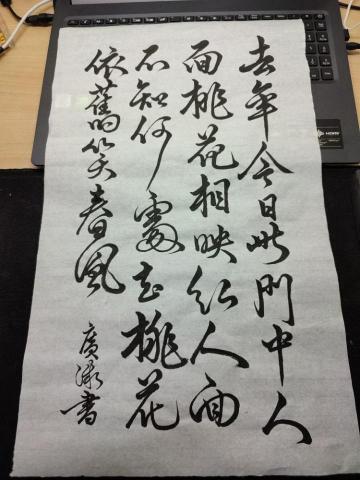 去年今日此門中人
面桃花相映紅人面
不知何處去桃花
依舊笑春風
廣書